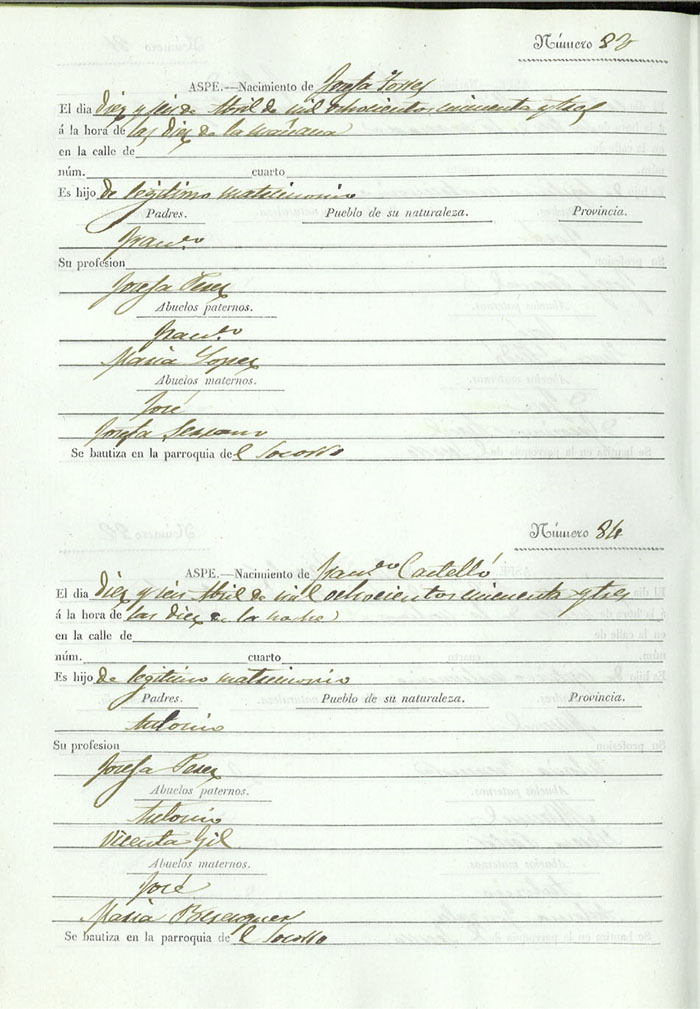 Número 83
ASPE.—Nacimiento de Josefa Torres
El dia diez y seis de Abril de mil ochocientos cincuenta y tres
á la hora de las diez de la mañana
en la calle de
núm. cuarto
Es hijo de legitimo matrimonio
Padres. Pueblo de su naturaleza. Provincia.
Fran.co
Su profesion
Josefa Perez
Abuelos paternos.
Fran.co
Maria Lopez
Abuelos maternos.
José
Josefa Serrano
Se bautiza en la parroquia del Socorro
Número 84
ASPE.—Nacimiento de Fran.co Castelló
El dia diez y seis Abril de mil ochocientos cincuenta y tres
á la hora de las diez de la noche
en la calle de
núm. cuarto
Es hijo de legitimo matrimonio
Padres. Pueblo de su naturaleza. Provincia.
Antonio
Su profesion
Josefa Perez
Abuelos paternos.
Antonio
Vicenta Gil
Abuelos maternos.
José
Maria Berenguer
Se bautiza en la parroquia de el Socorro